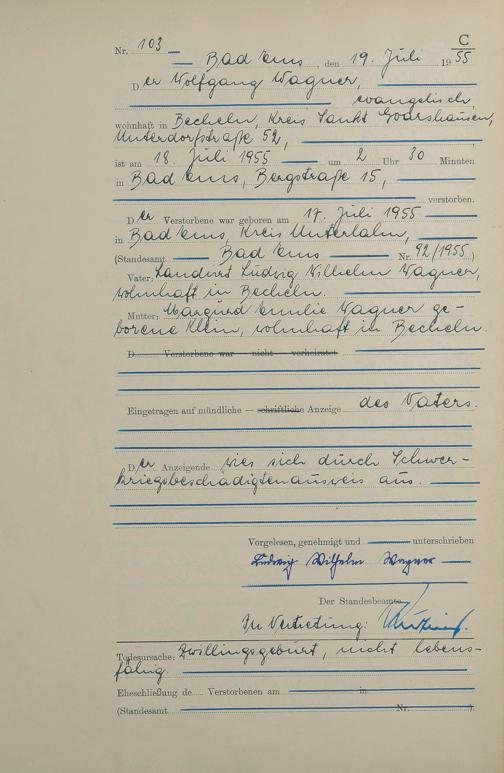 C
Nr. 103
Bad Ems, den 19. Juli 1955
Der Wolfgang Wagner,
evangelisch,
wohnhaft in Becheln, Kreis Sankt Goarshausen,
Unterdorfstraße 52,
ist am 18. Juli 1955 um 2 Uhr 30 Minuten
in Bad Ems, Bergstraße 15,
verstorben.
Der Verstorbene war geboren am 17. Juli 1955
in Bad Ems, Kreis Unterlahn,
(Standesamt Bad Ems Nr. 92/1955)
Vater: Landwirt Ludwig Wilhelm Wagner,
wohnhaft in Becheln.
Mutter: Margund Emilie Wagner ge-
borene Klein, wohnhaft in Becheln.
D Verstorbene war nicht verheiratet
Eingetragen auf mündliche — schriftliche Anzeige des Vaters.
Der Anzeigende wies sich durch Schwer-
kriegsbeschädigtenausweis aus.
Vorgelesen, genehmigt und unterschrieben
Ludwig Wilhelm Wagner
Der Standesbeamte
In Vertretung:
Todesursache: Zwillingsgeburt, nicht lebens-
fähig.
Eheschließung de Verstorbenen am in
(Standesamt Nr. )